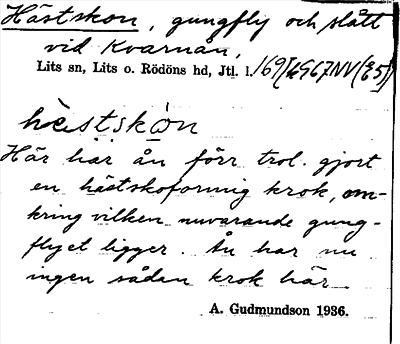 Hästskon, gungfly och slått
vid Kvarnån,
Lits sn, Lits o. Rödöns hd, Jtl. l.
hèstskòn
Här har ån förr trol. gjort
en hästskoformig krok, om-
kring vilken nuvarande gung-
flyet ligger. Ån har nu
ingen sådan krok här
A. Gudmundson 1936.